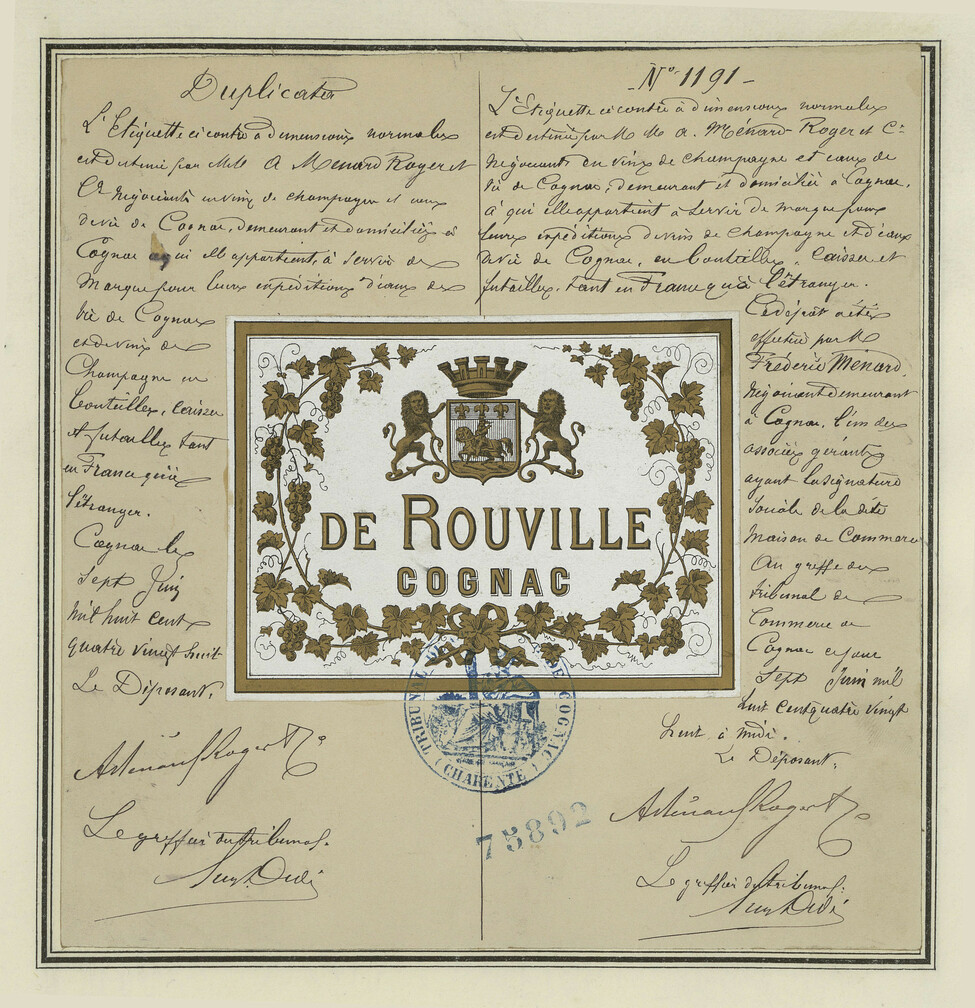 Duplicata
L'Etiquette ci contre à dimensions normales
est destinée par M.M. A Menard Royer et
Cie Négociants en vins de champagne et eaux
de vie de Cognac, demeurant et domiciliés à
Cognac à qui elle appartient, à servir de
Marque pour leurs expéditions d'eaux de
vie de Cognac
et de vins de
Champagne en
bouteilles, caisses
et futailles tant
en France qu'à
l'étranger.
Cognac le
Sept Juin
mil huit cent
quatre vingt huit
Le Déposant,
A Ménard Royer & Cie
Le greffier du tribunal.
No 1191
L'Etiquette ci contre à dimensions normales
est destinée par M M. A. Ménard-Royer et Cie
Négociants en vins de Champagne et eaux de
vie de Cognac, demeurant et domiciliés à Cognac,
à qui elle appartient à servir de marque pour
leurs expéditions de vins de Champagne et d'eaux
de vie de Cognac, en bouteilles, caisses et
futailles, tant en France qu'à l'étranger.
Ce dépôt a été
effectué par M
Frédéric Ménard
Négociant demeurant
à Cognac, l'un des
associés gérants
ayant la signature
sociale de la dite
Maison de Commerce
Au greffe du
tribunal de
Commerce de
Cognac ce jour
Sept Juin mil
huit cent quatre vingt
huit à midi.
Le Déposant,
A Ménard Royer & Cie
Le greffier du tribunal.
DE ROUVILLE
COGNAC
TRIBUNAL DE COGNAC
(CHARENTE)
75892